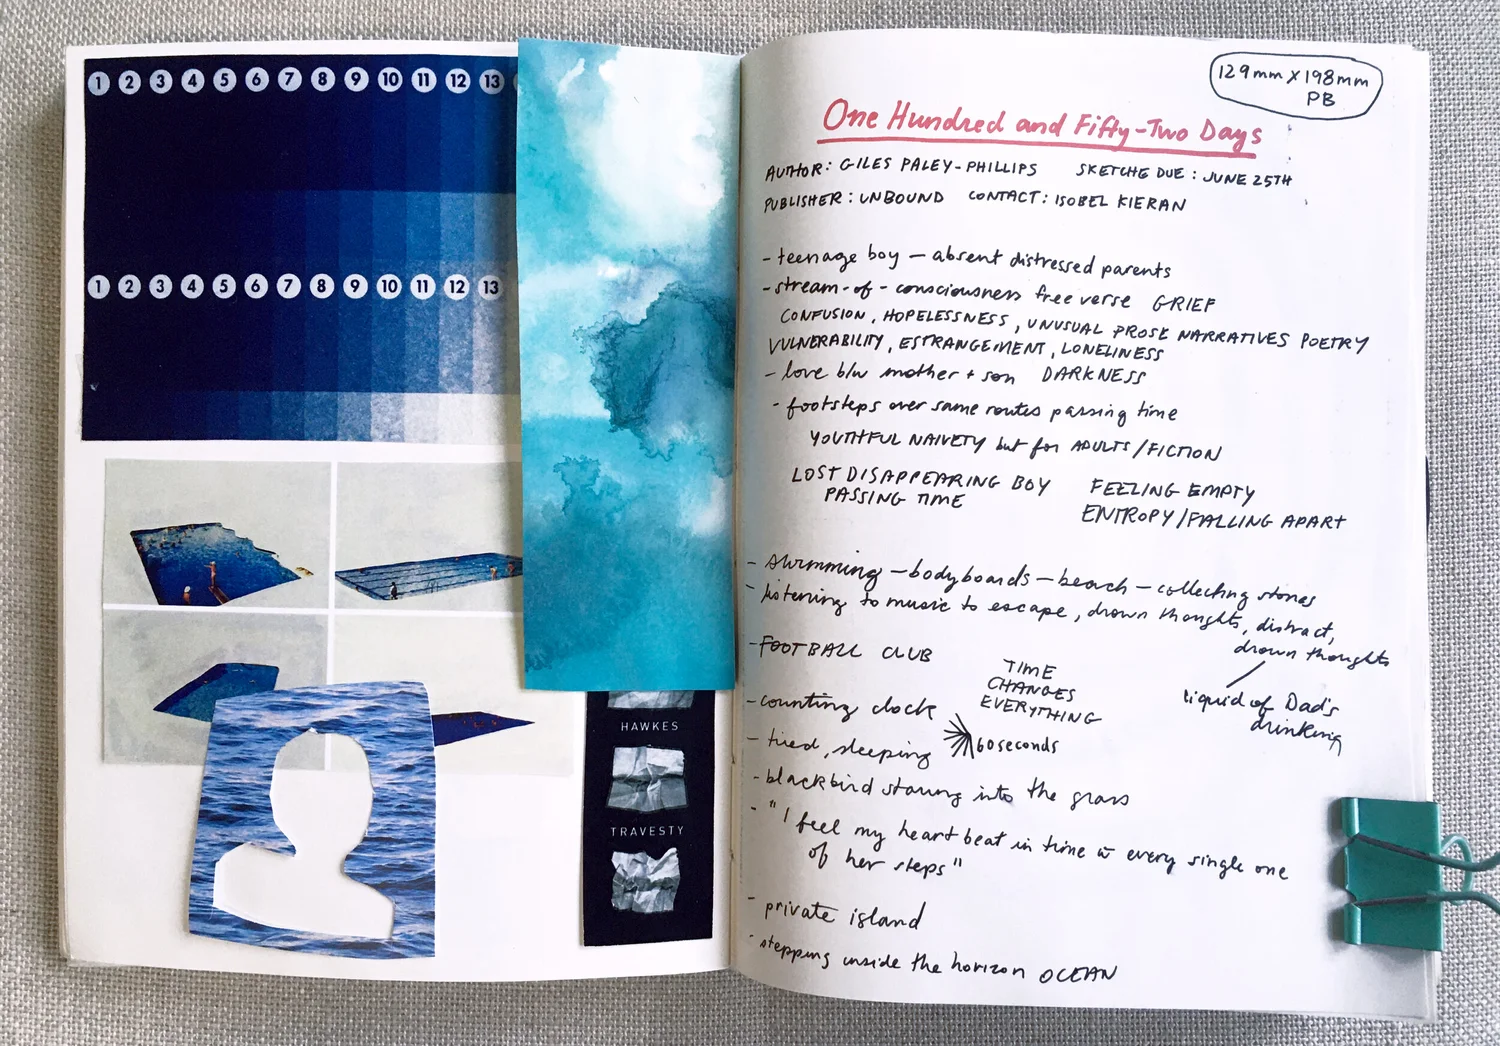 1 2 3 4 5 6 7 8 9 10 11 12 13
1 2 3 4 5 6 7 8 9 10 11 12 13
HAWKES
TRAVESTY
129mm X 198mm
PB
One Hundred and Fifty-Two Days
AUTHOR: GILES PALEY-PHILLIPS SKETCHE DUE: JUNE 25TH
PUBLISHER: UNBOUND CONTACT: ISOBEL KIERAN
- teenage boy — absent distressed parents
- stream-of-consciousness free verse GRIEF
CONFUSION, HOPELESSNESS, UNUSUAL PROSE NARRATIVES POETRY
VULNERABILITY, ESTRANGEMENT, LONELINESS
- love b/w mother + son DARKNESS
- footsteps over same routes passing time
YOUTHFUL NAIVETY but for ADULTS/FICTION
LOST DISAPPEARING BOY
PASSING TIME
FEELING EMPTY
ENTROPY/FALLING APART
- swimming — bodyboards — beach — collecting stones
- listening to music to escape, drown thoughts, distract,
drown thoughts
liquid of Dad's
drinking
- FOOTBALL CLUB
TIME
CHANGES
EVERYTHING
- counting clock
60 seconds
- tired, sleeping
- blackbird staring into the grass
- "I feel my heart beat in time w every single one
of her steps"
- private island
- stepping inside the horizon OCEAN